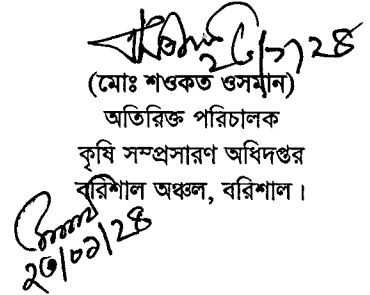 ২৩/০১/২৪
(মোঃ শওকত ওসমান)
অতিরিক্ত পরিচালক
কৃষি সম্প্রসারণ অধিদপ্তর
বরিশাল অঞ্চল, বরিশাল।
২৩/০১/২৪